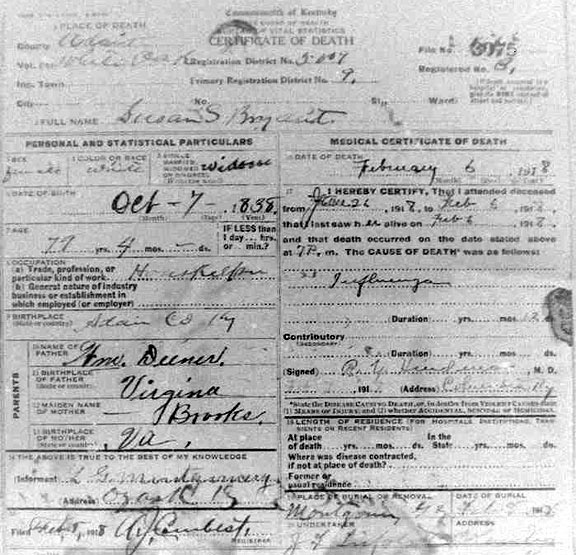 Commonwealth of Kentucky
BUREAU OF VITAL STATISTICS
CERTIFICATE OF DEATH
PLACE OF DEATH
County Adair
Vot. Pct. White Oak Registration District No. 5-007
File No. 6075
Inc. Town Primary Registration District No. 9.
Registered No. 3,
City No. St., Ward)
FULL NAME Susan S Bryant
PERSONAL AND STATISTICAL PARTICULARS
SEX female COLOR OR RACE white SINGLE MARRIED WIDOWED OR DIVORCED widow
DATE OF BIRTH
Oct - 7 - 1838
(Month) (Day) (Year)
AGE
79 yrs. 4 mos. - ds.
IF LESS than 1 day... hrs. or ... min.?
OCCUPATION
(a) Trade, profession, or particular kind of work.
(b) General nature of industry business or establishment in which employed (or employer)
BIRTHPLACE (State or country) Adair Co Ky
PARENTS
NAME OF FATHER Wm. Deener.
BIRTHPLACE OF FATHER (State or country) Virgina
MAIDEN NAME OF MOTHER Brooks.
BIRTHPLACE OF MOTHER (State or country) Va,
THE ABOVE IS TRUE TO THE BEST OF MY KNOWLEDGE
(Informant L G Montgomery
(Address Ozark Ky
Filed Feb 8, 1918
REGISTRAR
MEDICAL CERTIFICATE OF DEATH
DATE OF DEATH
February 6 1918
(Month) (Day) (Year)
I HEREBY CERTIFY, That I attended deceased
from 1918 to Feb 6 1918,
that I last saw her alive on Feb 6 1918,
and that death occurred on the date stated above
at 7 P. m. The CAUSE OF DEATH* was as follows:
Influenza
(Duration) yrs. mos. 12 ds.
Contributory
(SECONDARY)
(Duration) yrs. mos. ds.
(Signed) M. D.
191 (Address) Columbia Ky
*State the DISEASE CAUSING DEATH, or, in deaths from VIOLENT CAUSES state (1) MEANS OF INJURY; and (2) whether ACCIDENTAL, SUICIDAL or HOMICIDAL.
LENGTH OF RESIDENCE (FOR HOSPITALS, INSTITUTIONS, TRANSIENTS OR RECENT RESIDENTS)
At place of death yrs. mos. ds. In the State yrs. mos. ds.
Where was disease contracted, if not at place of death?
Former or usual residence
PLACE OF BURIAL OR REMOVAL
DATE OF BURIAL
Montgomery
UNDERTAKER
ADDRESS